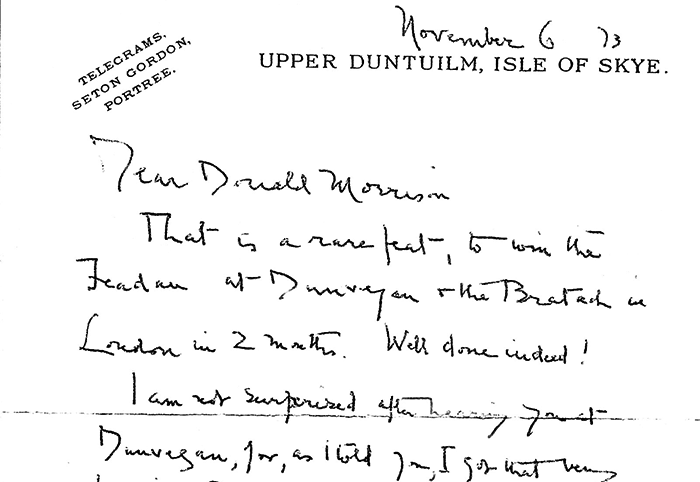 November 6 73
TELEGRAMS.
SETON GORDON,
PORTREE.
UPPER DUNTUILM, ISLE OF SKYE.
Dear Donald Morrison
That is a rare feat, to win the
Feadan at Dunvegan & the Bratach in
London in 2 months. Well done indeed!
I am not surprised after hearing you at
Dunvegan, for, as I told you, I got that